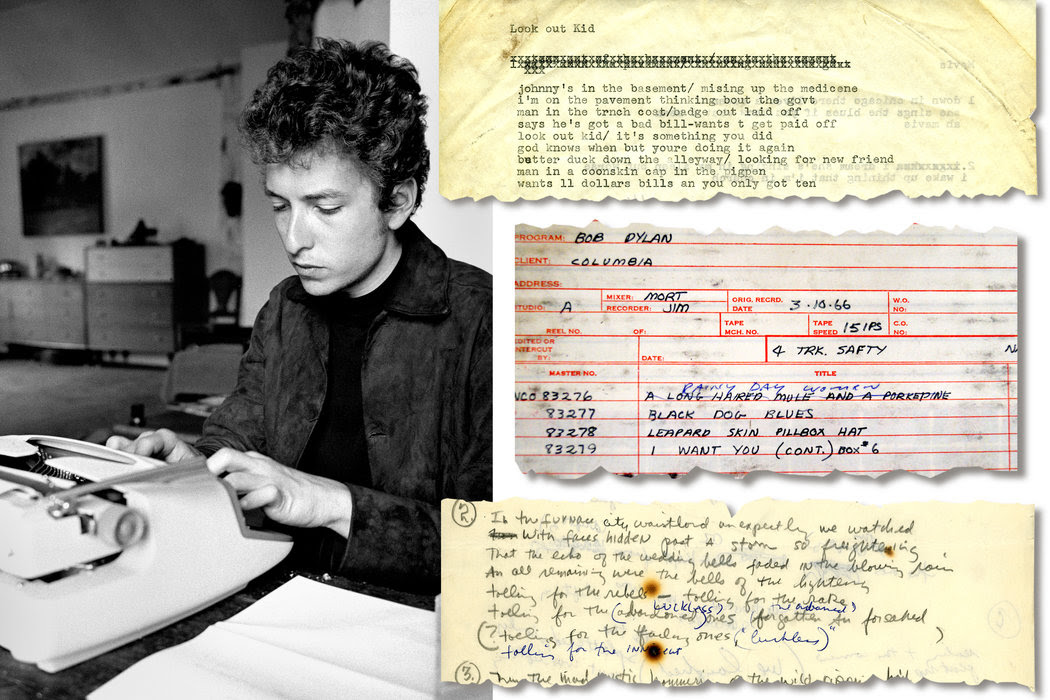 Look out Kid
johnny's in the basement/ mising up the medicene
i'm on the pavement thinking bout the govt
man in the trnch coat/badge out laid off
says he's got a bad bill-wants t get paid off
look out kid/ it's something you did
god knows when but youre doing it again
better duck down the alleyway/ looking for new friend
man in a coonskin cap in the pigpen
wants ll dollars bills an you only got ten
PROGRAM: BOB DYLAN
CLIENT: COLUMBIA
ADDRESS:
STUDIO: A MIXER: MORT ORIG. RECRD. DATE 3·10·66 W.O. NO:
RECORDER: JIM
REEL NO. OF: TAPE MCH. NO. TAPE SPEED 15 IPS C.O. NO:
EDITED OR INTERCUT BY: DATE: 4 TRK. SAFTY
MASTER NO. TITLE
RAINY DAY WOMEN
NCO 83276 A LONG HAIRED MULE AND A PORKEPINE
83277 BLACK DOG BLUES
83278 LEAPARD SKIN PILLBOX HAT
83279 I WANT YOU (CONT.) BOX #6
2. In the furnace city unexpectly we watched
With faces hidden past a storm so freightening
That the echo of the wedding bells faded in the blowing rain
An all remaining were the bells of the lightening
tolling for the rebels – tolling for the rake
tolling for the (abandoned) ones forgotten an forsaked
(LUCKLESS)
(? toling for the ones ("luckless")
tolling for the INNOCENT
3. the mad mystic the wild